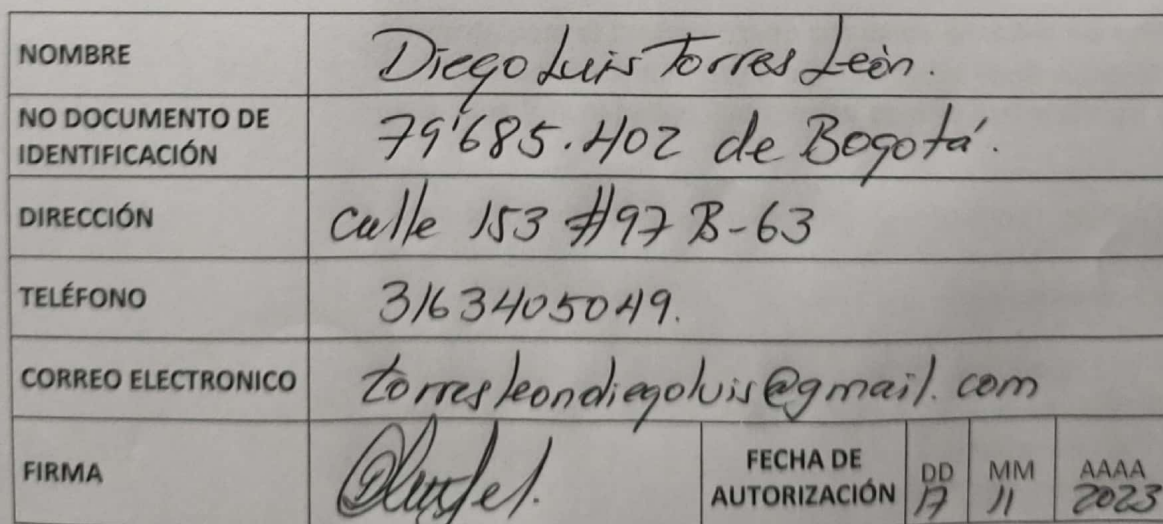 NOMBRE Diego Luis Torres León.
NO DOCUMENTO DE
IDENTIFICACIÓN 79'685.402 de Bogotá.
DIRECCIÓN calle 153 #97 B-63
TELÉFONO 3163405049.
CORREO ELECTRONICO torresleondiegoluis@gmail.com
FIRMA
FECHA DE
AUTORIZACIÓN
DD MM AAAA
17 11 2023